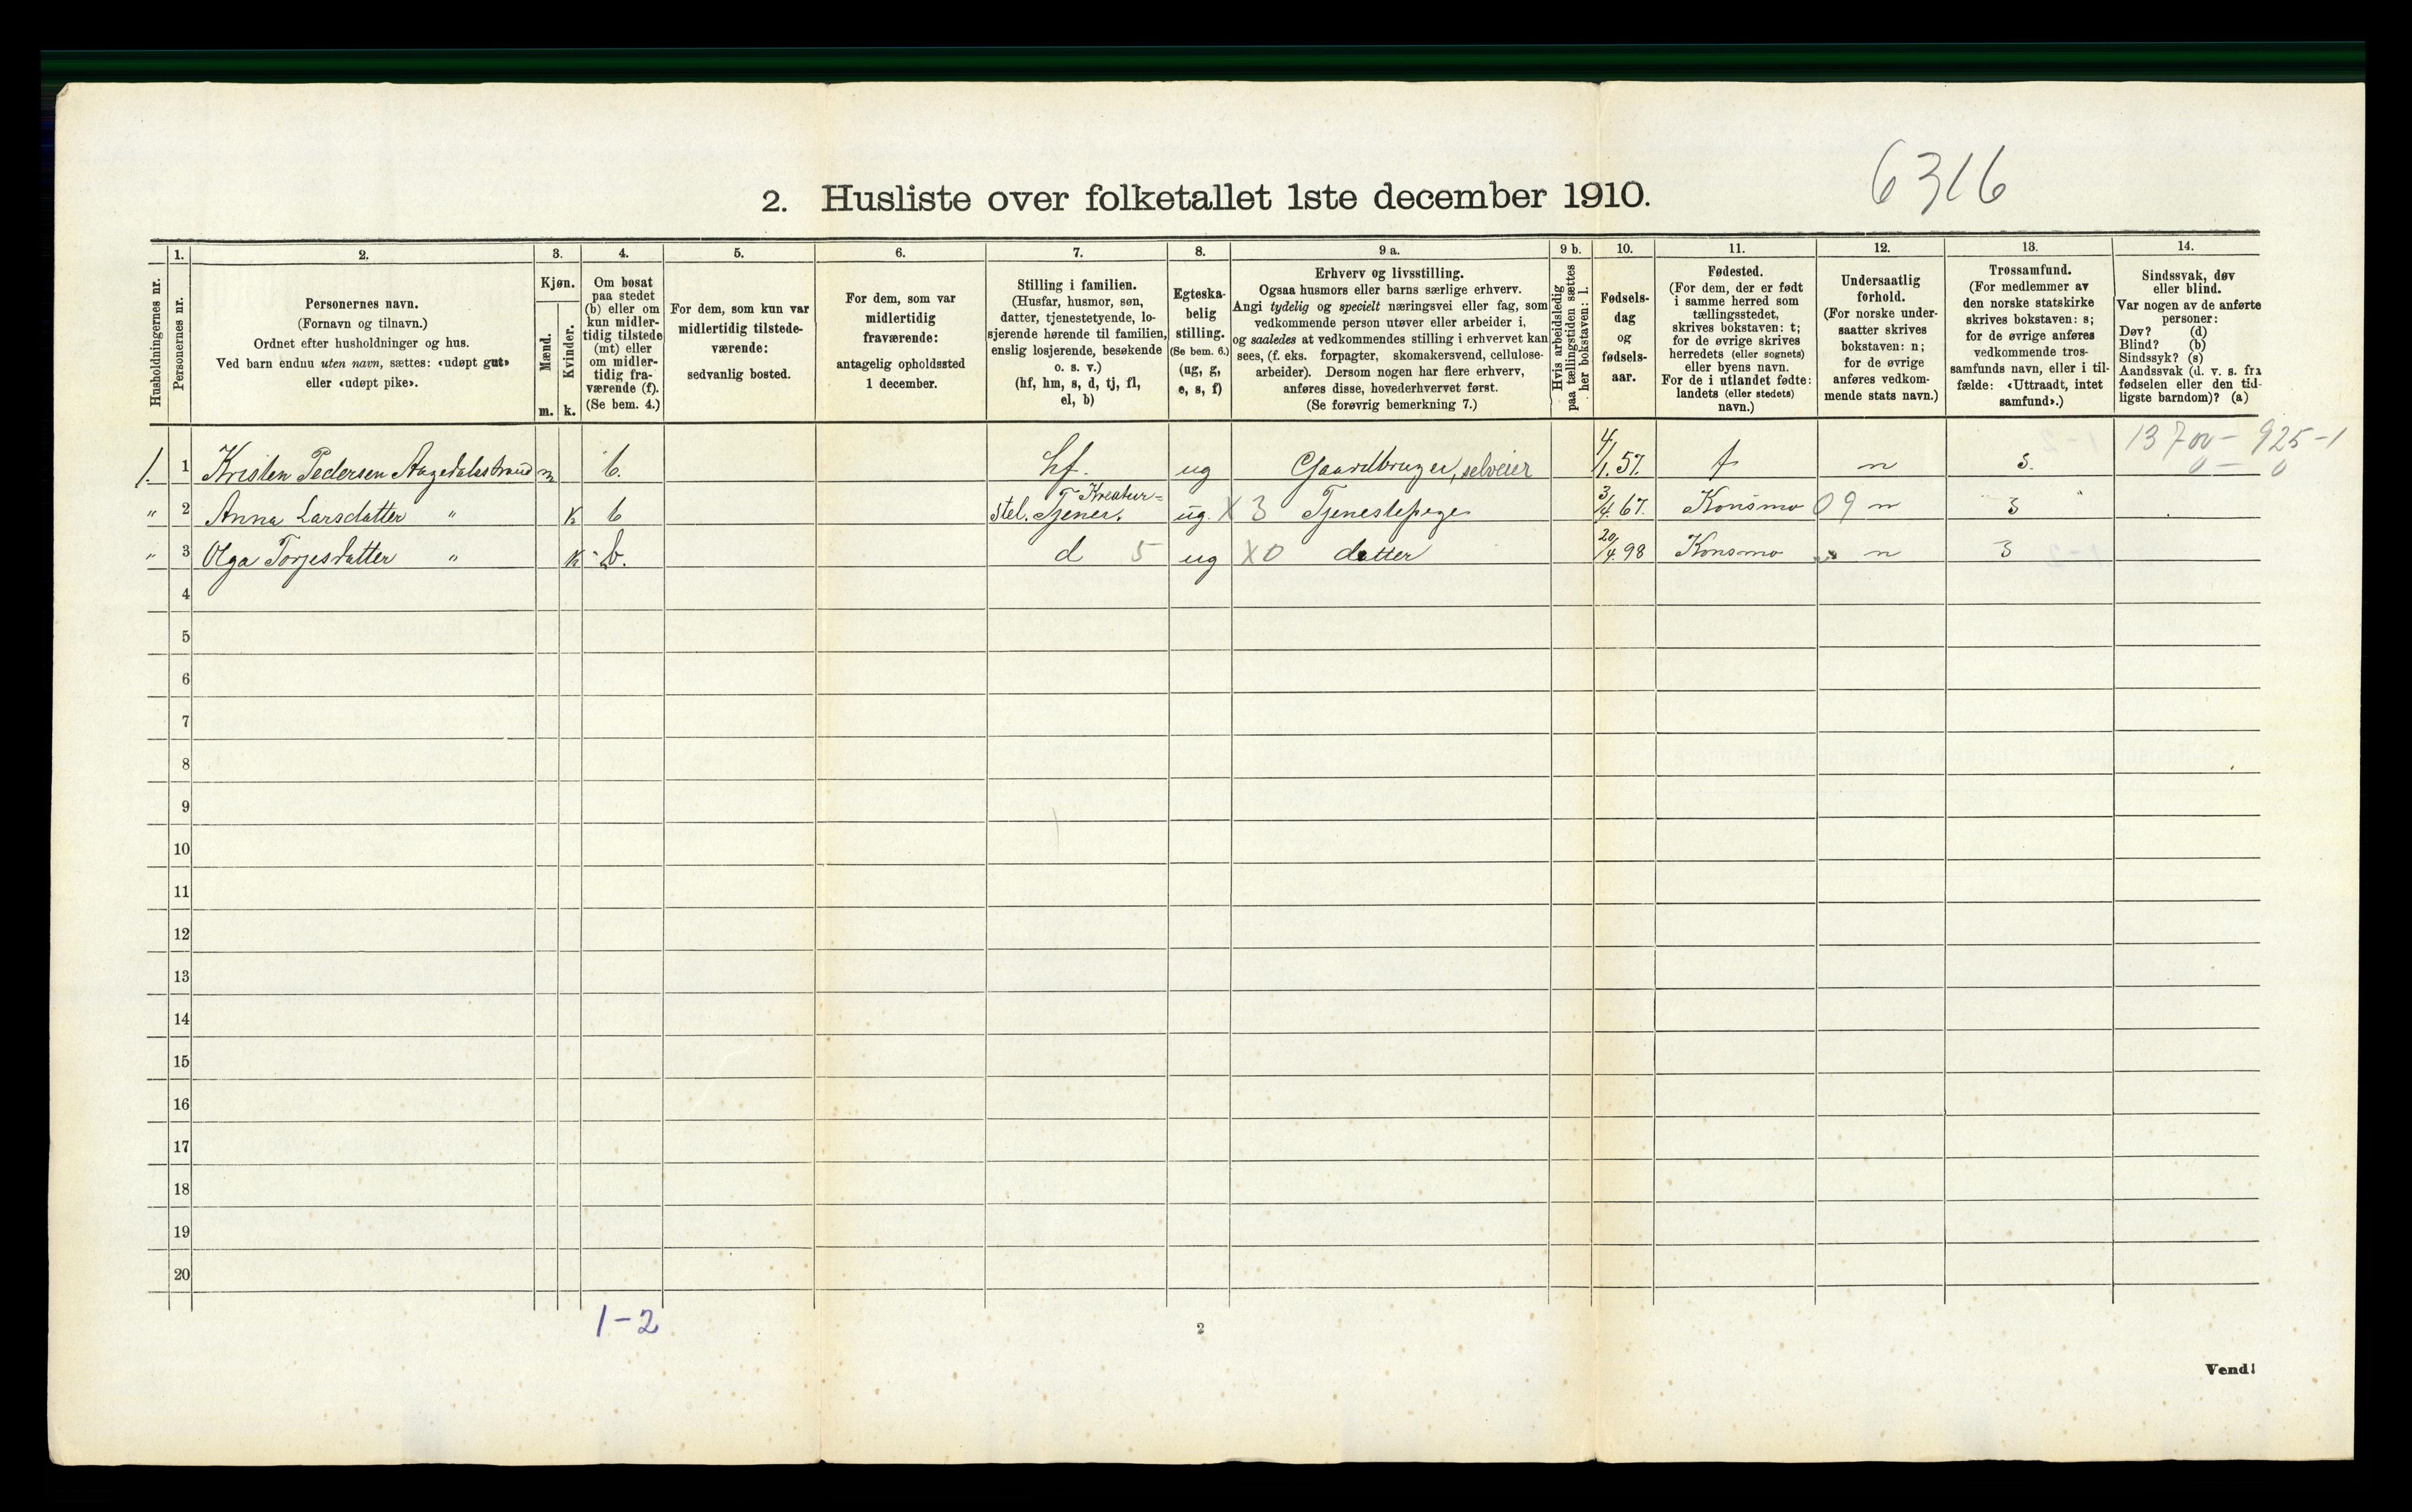 6316
2. Husliste over folketallet 1ste december 1910.
Husholdningernes nr.
1.
Personernes nr.
2.
Personernes navn.
(Fornavn og tilnavn.)
Ordnet efter husholdninger og hus.
Ved barn endnu uten navn, sættes: «udøpt gut»
eller «udøpt pike».
3.
Kjøn.
Mænd.
Kvinder.
m. k.
4.
Om bosat
paa stedet
(b) eller om
kun midler-
tidig tilstede
(mt) eller
om midler-
tidig fra-
værende (f).
(Se bem. 4.)
5.
For dem, som kun var
midlertidig tilstede-
værende:
sedvanlig bosted.
6.
For dem, som var
midlertidig
fraværende:
antagelig opholdssted
1 december.
7.
Stilling i familien.
(Husfar, husmor, søn,
datter, tjenestetyende, lo-
sjerende hørende til familien,
enslig losjerende, besøkende
o. s. v.)
(hf, hm, s, d, tj, fl,
el, b)
8.
Egteska-
belig
stilling.
(Se bem. 6.)
(ug, g,
e, s, f)
9 a.
Erhverv og livsstilling.
Ogsaa husmors eller barns særlige erhverv.
Angi tydelig og specielt næringsvei eller fag, som
vedkommende person utøver eller arbeider i,
og saaledes at vedkommendes stilling i erhvervet kan
sees, (f. eks. forpagter, skomakersvend, cellulose-
arbeider). Dersom nogen har flere erhverv,
anføres disse, hovederhvervet først.
(Se forøvrig bemerkning 7.)
9 b.
Hvis arbeidsledig
paa tællingstiden sættes
her bokstaven: l.
10.
Fødsels-
dag
og
fødsels-
aar.
11.
Fødested.
(For dem, der er født
i samme herred som
tællingsstedet,
skrives bokstaven: t;
for de øvrige skrives
herredets (eller sognets)
eller byens navn.
For de i utlandet fødte:
landets (eller stedets)
navn.)
12.
Undersaatlig
forhold.
(For norske under-
saatter skrives
bokstaven: n;
for de øvrige
anføres vedkom-
mende stats navn.)
13.
Trossamfund.
(For medlemmer av
den norske statskirke
skrives bokstaven: s;
for de øvrige anføres
vedkommende tros-
samfunds navn, eller i til-
fælde: «Uttraadt, intet
samfund».)
14.
Sindssvak, døv
eller blind.
Var nogen av de anførte
personer:
Døv? (d)
Blind? (b)
Sindssyk? (s)
Aandssvak (d. v. s. fra
fødselen eller den tid-
ligste barndom)? (a)
13 700 – 925 – 1
0 – 0
1. 1 Kristen Pedersen Aagedalsstrand m b. hf. ug Gaardbruger, selveier 4/1. 57. t n s.
" 2 Anna Larsdatter " k b Kreatur=
stel. Tjener. ug. X 3 Tjenestepige 3/4. 67. Konsmo 09 n s
" 3 Olga Torjesdatter " k b. d 5 ug X0 datter 20/4. 98 Konsmo n s
4
5
6
7
8
9
10
11
12
13
14
15
16
17
18
19
20
1 – 2
2
Vend!